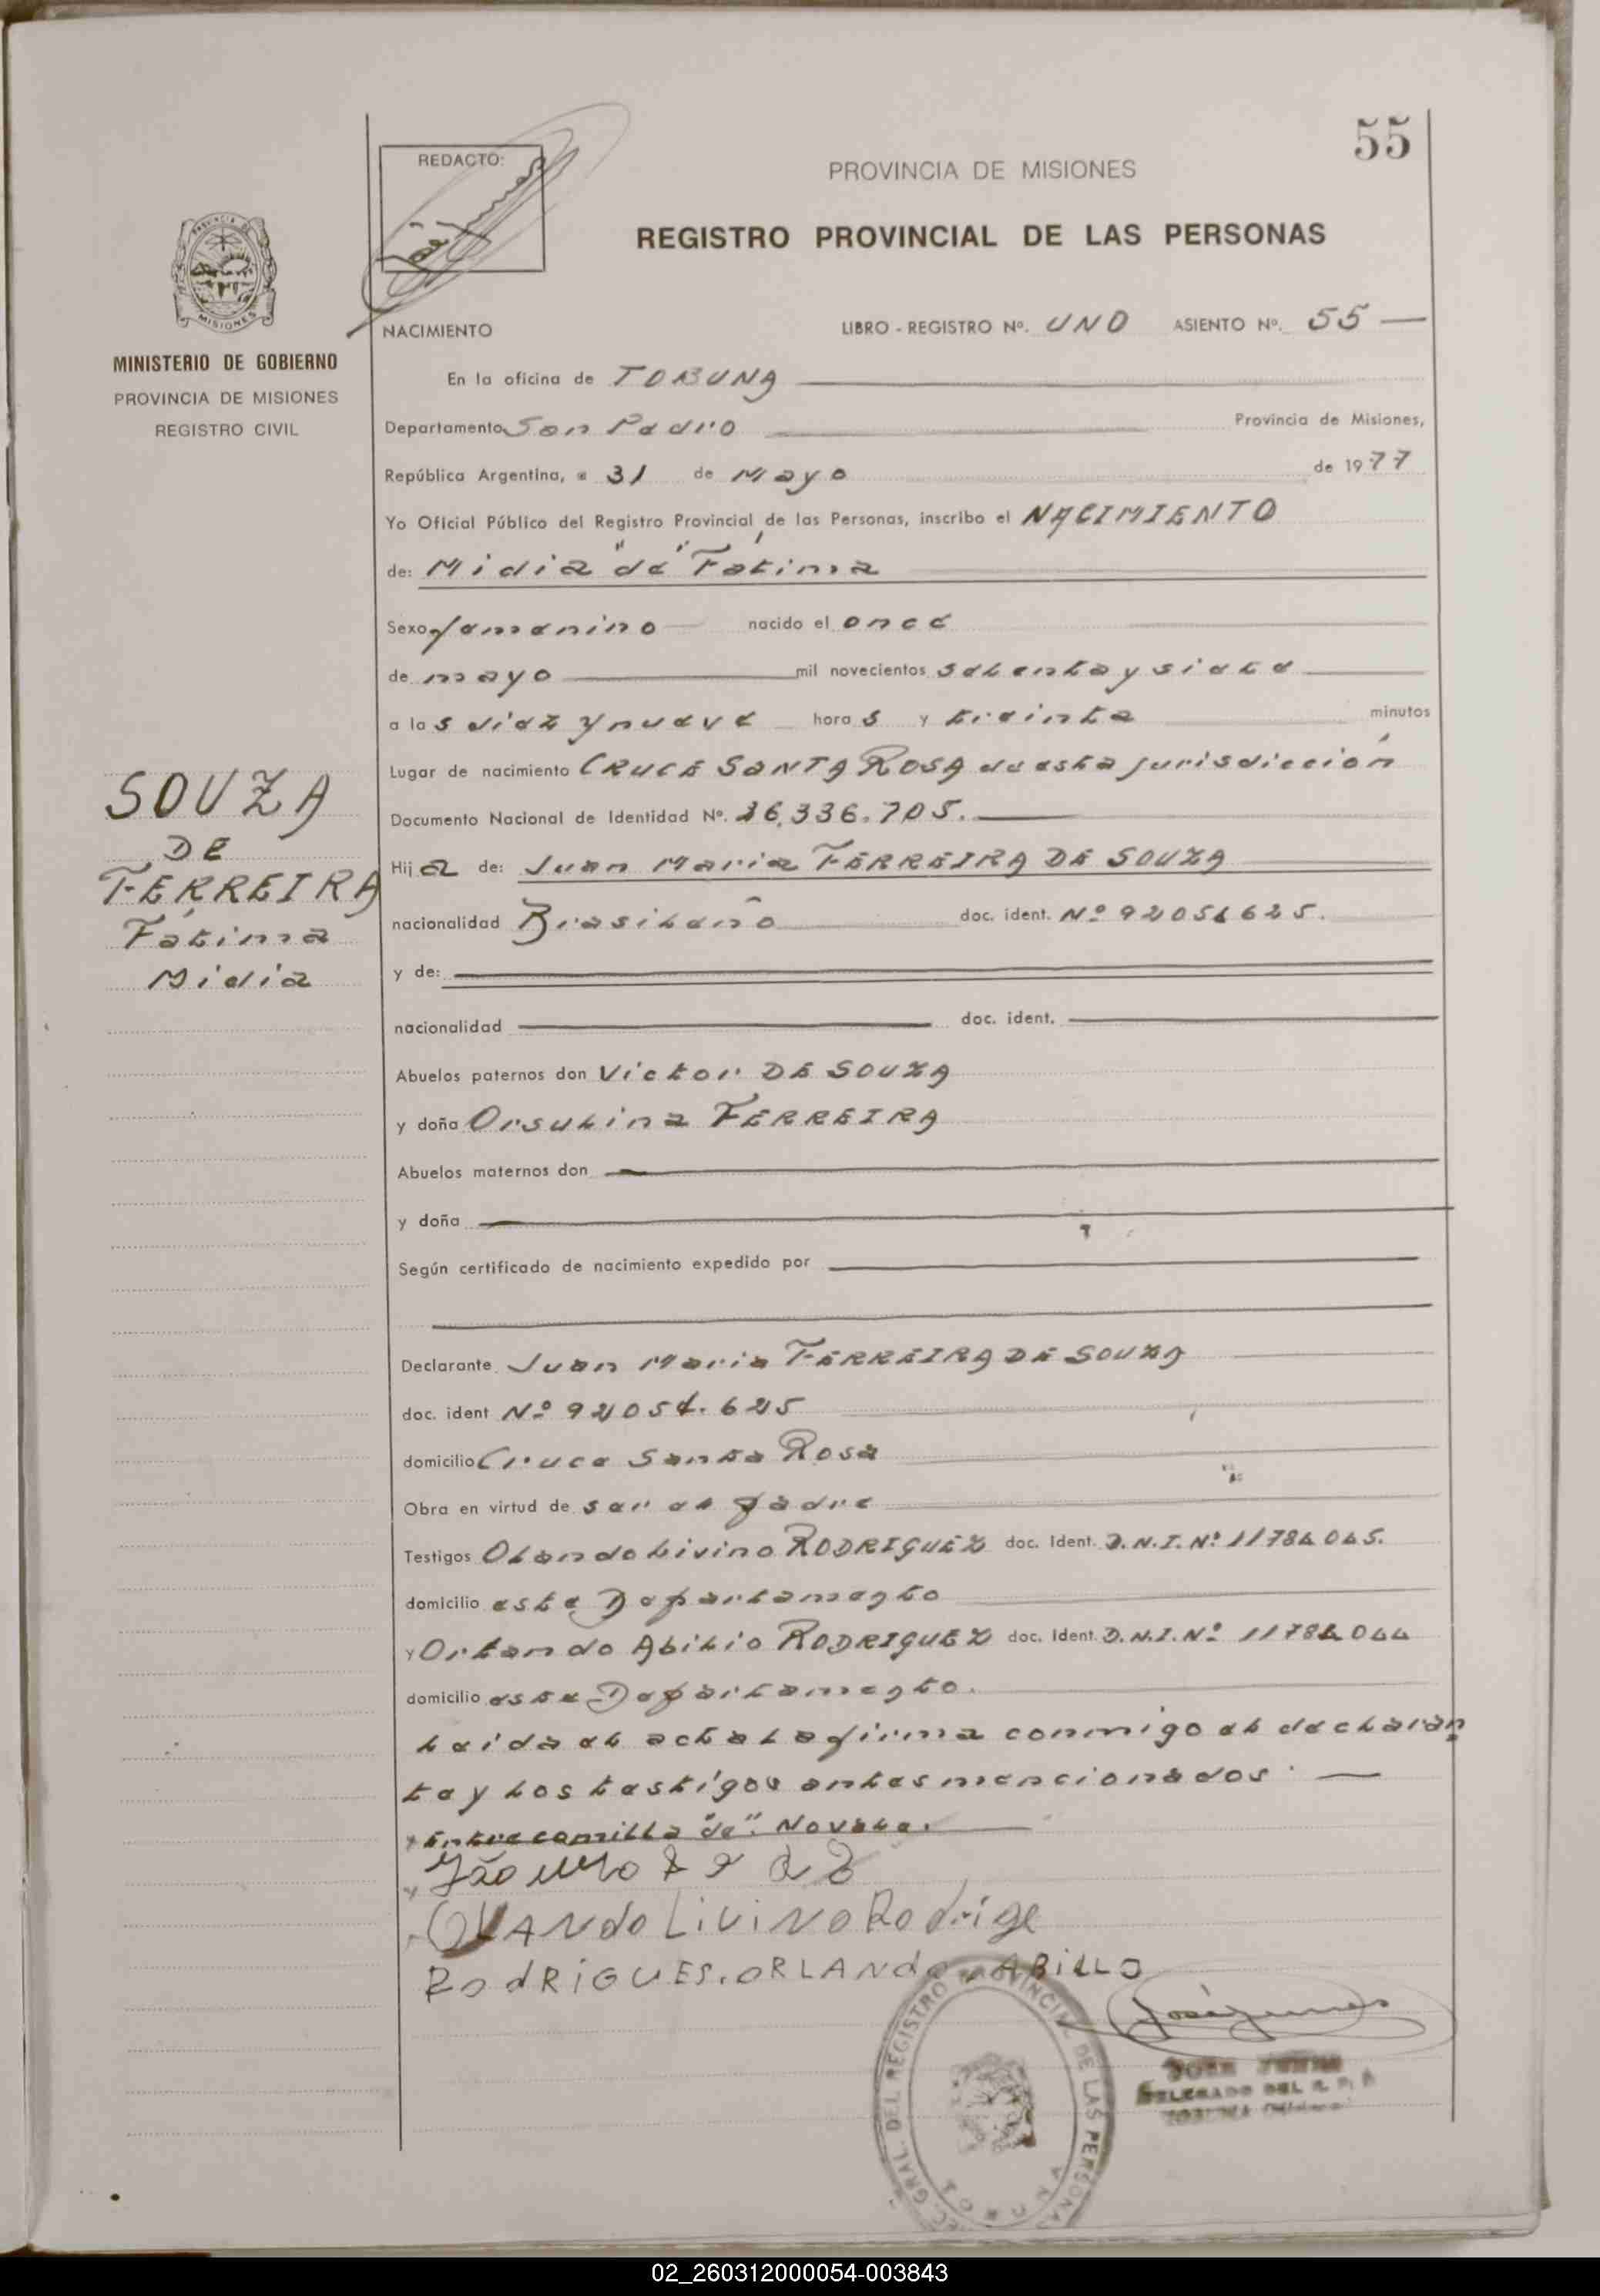 55
REDACTO:
PROVINCIA DE MISIONES
REGISTRO PROVINCIAL DE LAS PERSONAS
MISIONES
MINISTERIO DE GOBIERNO
PROVINCIA DE MISIONES
REGISTRO CIVIL
NACIMIENTO LIBRO - REGISTRO Nº. UNO ASIENTO Nº. 55 —
En la oficina de TOBUNA
Departamento San Pedro Provincia de Misiones,
República Argentina, a 31 de Mayo de 1977
Yo Oficial Público del Registro Provincial de las Personas, inscribo el NACIMIENTO
de: Midia "de" Fátima
Sexo femenino nacido el once
de mayo mil novecientos setenta y siete
a las diez y nueve horas y treinta minutos
Lugar de nacimiento CRUCE SANTA ROSA de esta jurisdicción
Documento Nacional de Identidad Nº. 26.336.705.
Hija de: Juan Maria FERREIRA DE SOUZA
nacionalidad Brasileño doc. ident. Nº 92051625.
y de:
nacionalidad doc. ident.
Abuelos paternos don Victor DE SOUZA
y doña Orsulina FERREIRA
Abuelos maternos don
y doña
Según certificado de nacimiento expedido por
Declarante Juan Maria FERREIRA DE SOUZA
doc. ident Nº 92051.625
domicilio Cruce Santa Rosa
Obra en virtud de ser el padre
Testigos Olando Livino RODRIGUEZ doc. Ident. D.N.I. Nº 11784045.
domicilio este Departamento
y Orlando Abilio RODRIGUEZ doc. Ident. D.N.I. Nº 11784044
domicilio este Departamento.
Leida el acta la firma conmigo el declaran
te y los testigos antes mencionados. —
Entre comilla "de". No vale.
OLANdo LiviNo Rodrige
RodRiGUES. ORLANdo ABiLLO
SOUZA
DE
FERREIRA
Fátima
Midia
JOSE
DELEGADO DEL R. P. P
TOBUNA
GRAL. DEL REGISTRO PROVINCIAL DE LAS PERSONAS
02_260312000054-003843